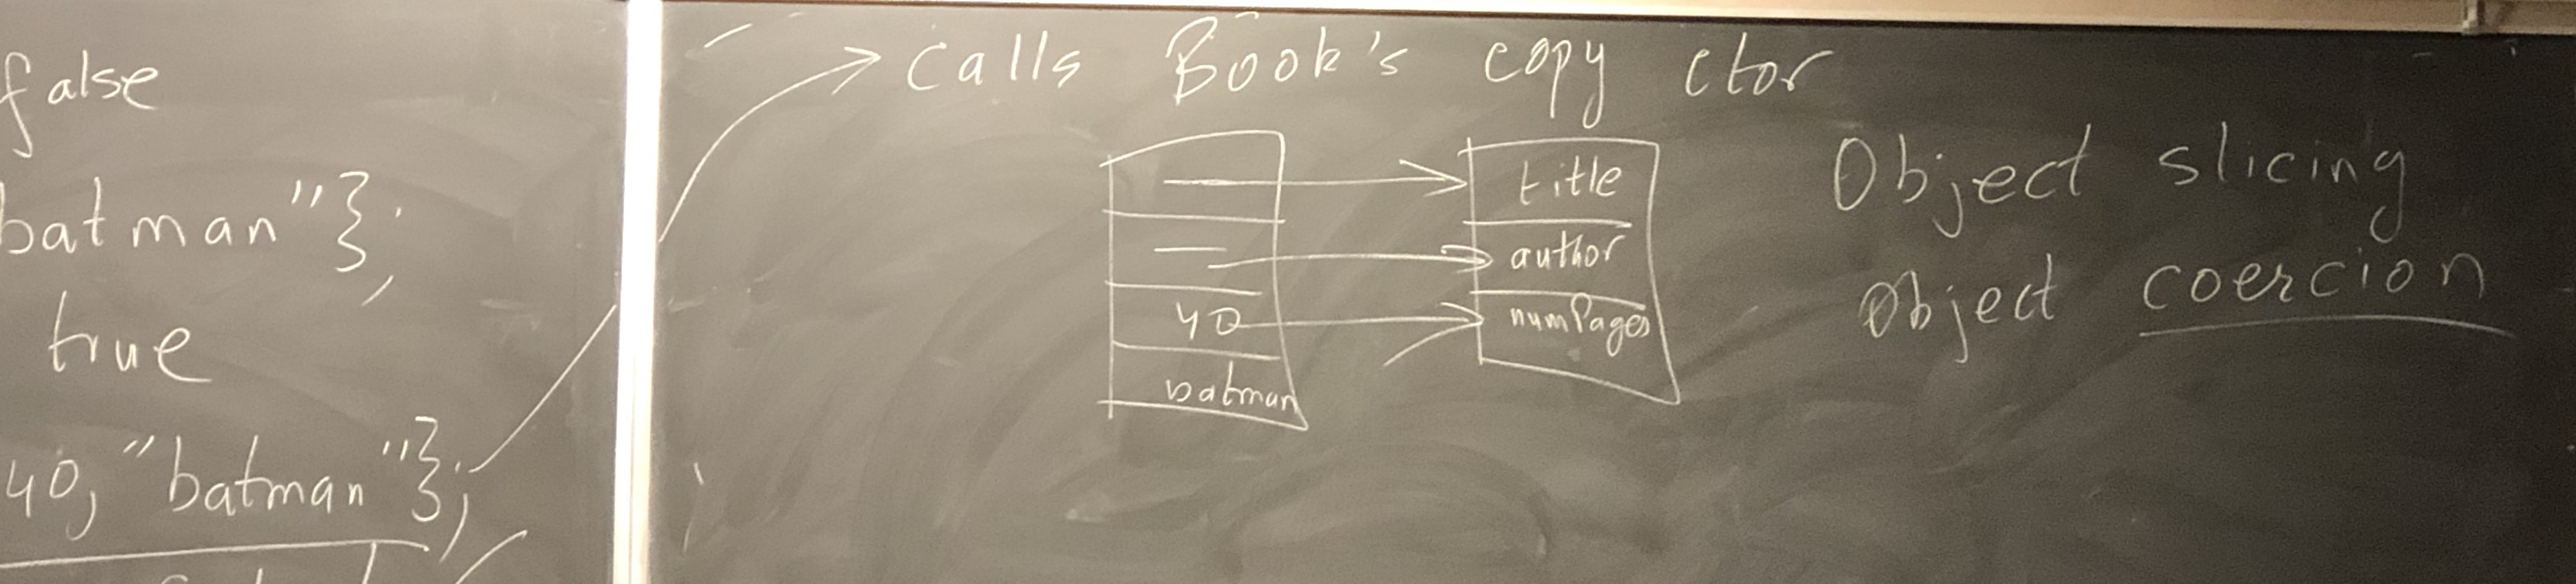 false
batman"};
true
40, "batman"};
calls Book's copy ctor
title
author
40
numPages
batman
Object slicing
Object coercion